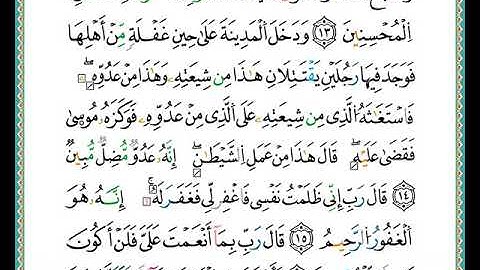 ٱلْمُحْسِنِينَ ١٣ وَدَخَلَ ٱلْمَدِينَةَ عَلَىٰ حِينِ غَفْلَةٍ مِّنْ أَهْلِهَا
فَوَجَدَ فِيهَا رَجُلَيْنِ يَقْتَتِلَانِ هَٰذَا مِن شِيعَتِهِۦ وَهَٰذَا مِنْ عَدُوِّهِۦ ۖ
فَٱسْتَغَٰثَهُ ٱلَّذِى مِن شِيعَتِهِۦ عَلَى ٱلَّذِى مِنْ عَدُوِّهِۦ فَوَكَزَهُۥ مُوسَىٰ
فَقَضَىٰ عَلَيْهِ ۖ قَالَ هَٰذَا مِنْ عَمَلِ ٱلشَّيْطَٰنِ ۖ إِنَّهُۥ عَدُوٌّ مُّضِلٌّ مُّبِينٌ
١٤ قَالَ رَبِّ إِنِّى ظَلَمْتُ نَفْسِى فَٱغْفِرْ لِى فَغَفَرَ لَهُۥٓ ۚ إِنَّهُۥ هُوَ
ٱلْغَفُورُ ٱلرَّحِيمُ ١٥ قَالَ رَبِّ بِمَآ أَنْعَمْتَ عَلَىَّ فَلَنْ أَكُونَ